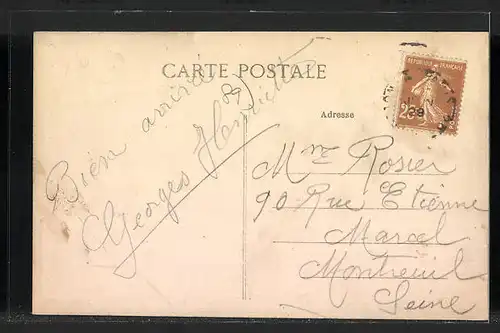 CARTE POSTALE
Bien arrivé
Georges Henriette
Adresse
REPUBLIQUE FRANÇAISE
25
Mme Rosier
90 Rue Etienne
Marcel
Montreuil
Seine